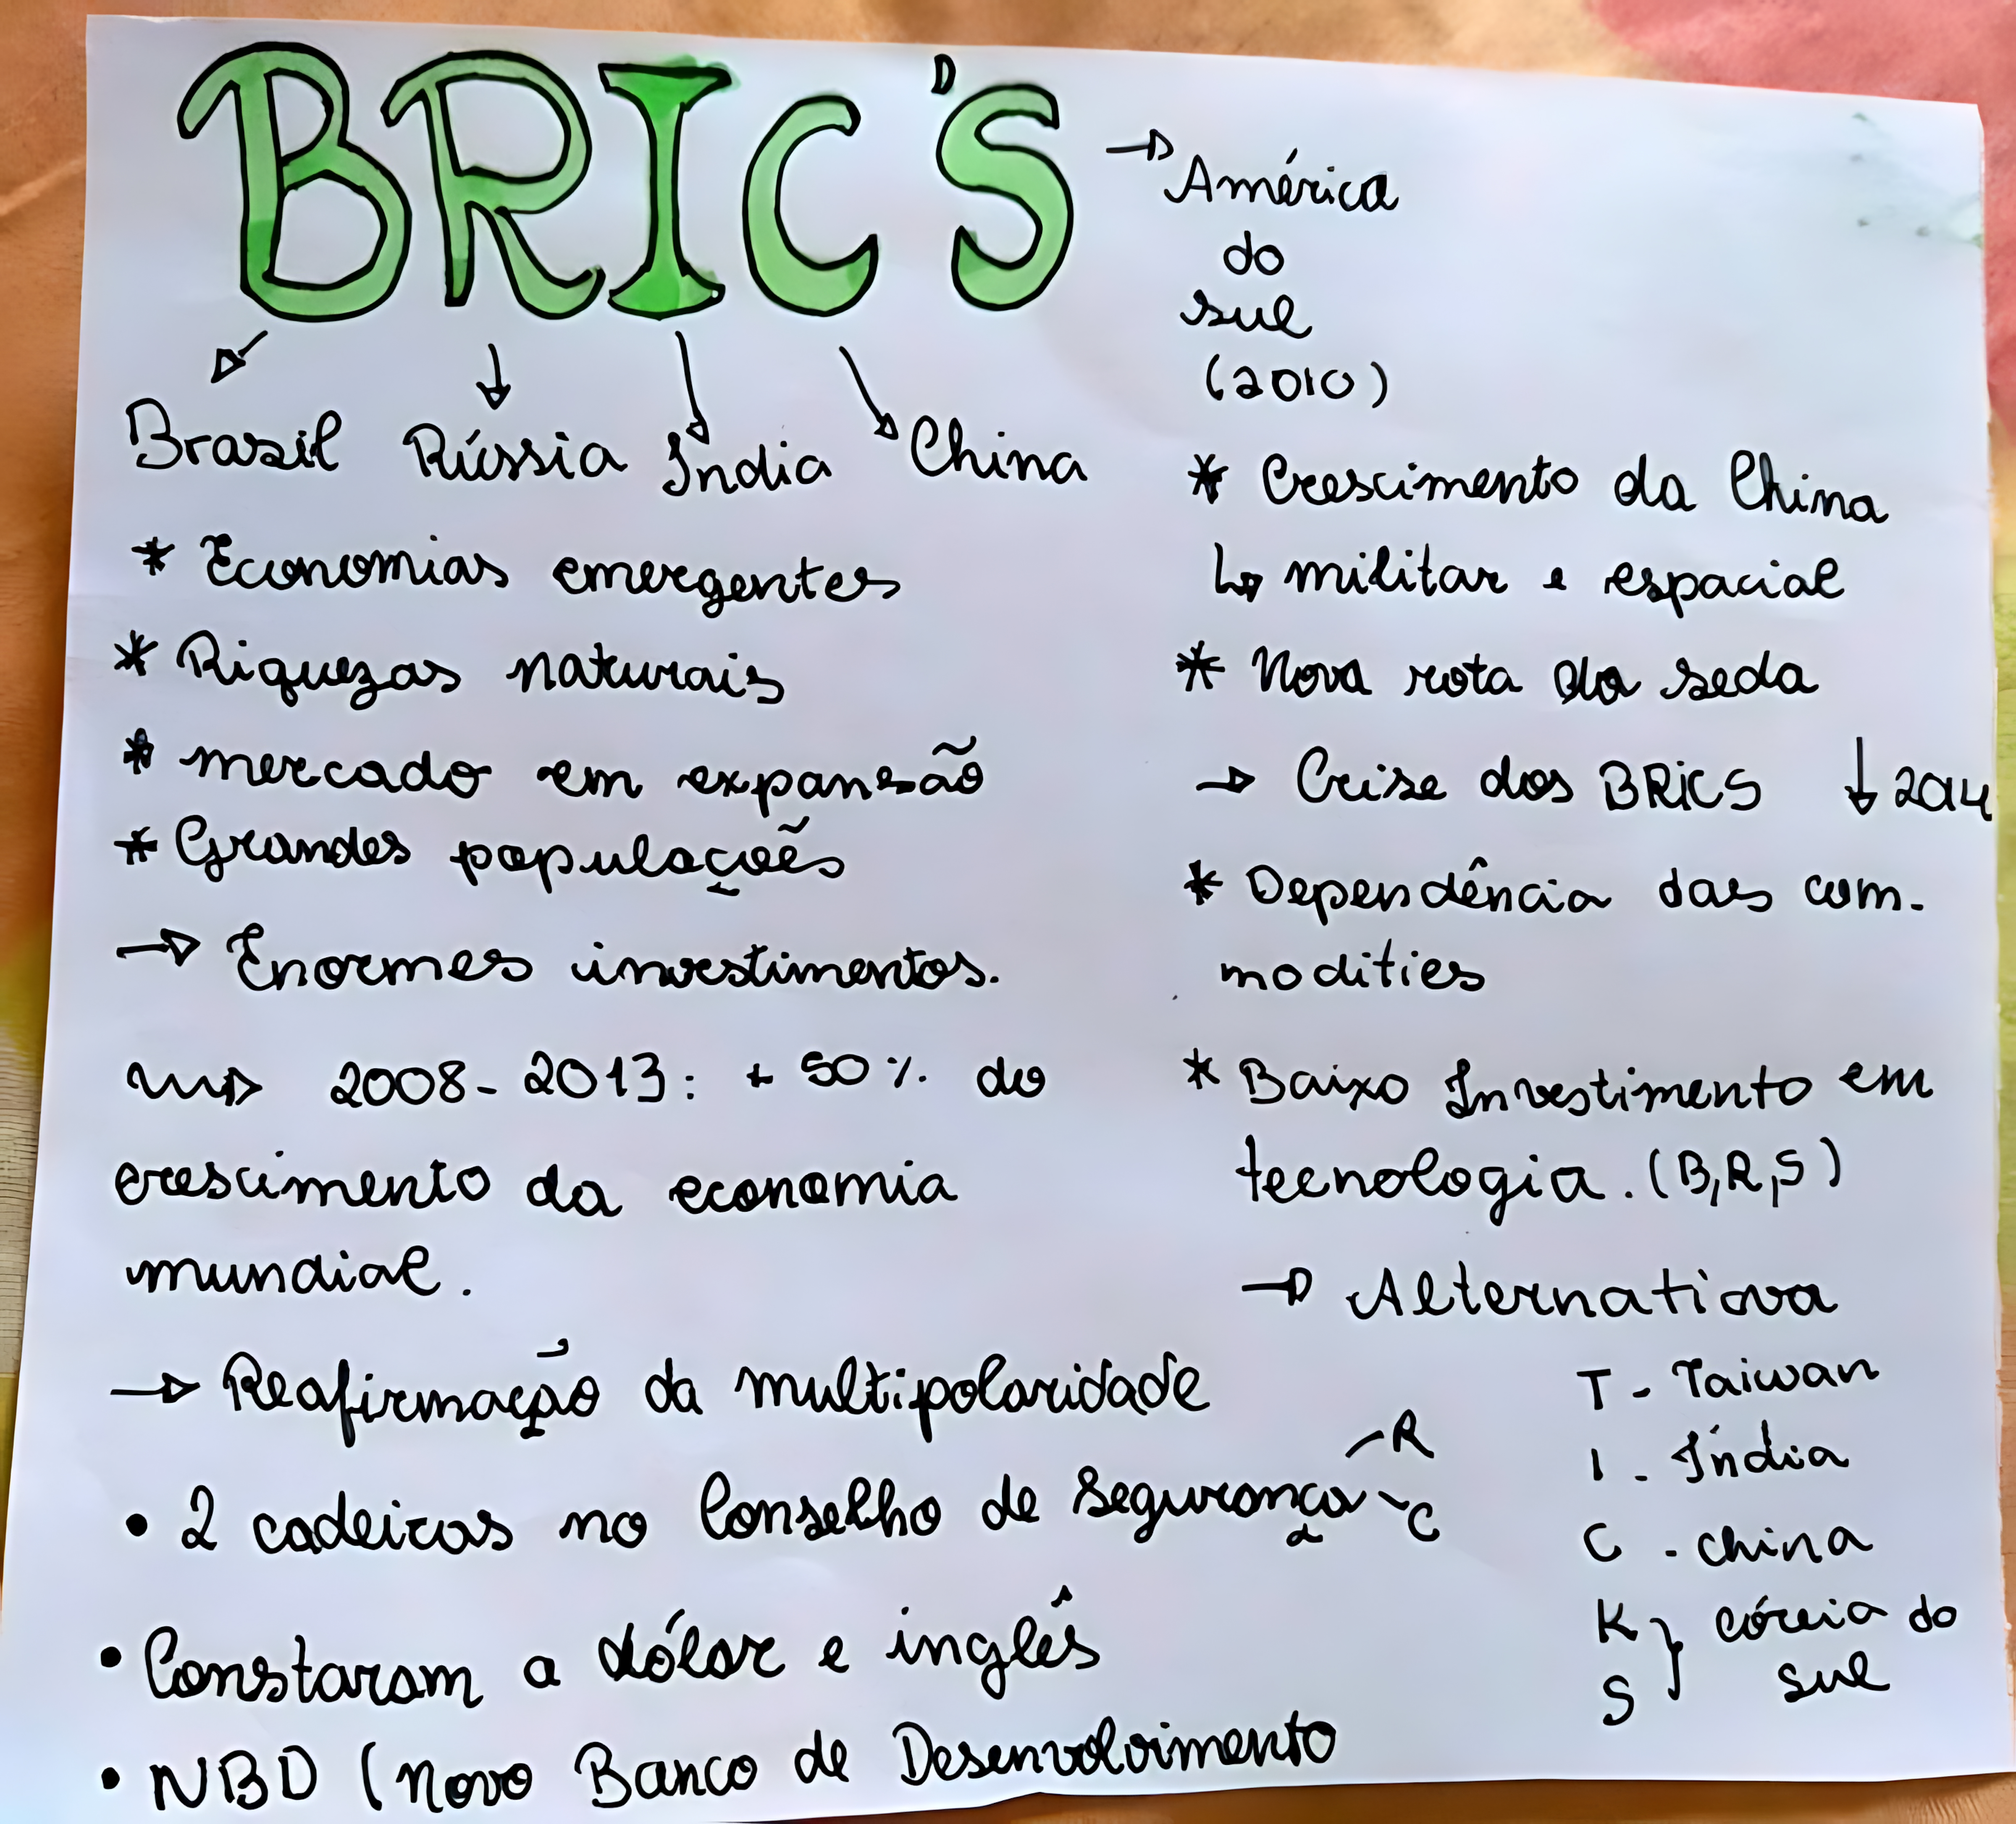 BRIC'S
→ América
do
sul
(2010)
Brasil Rússia Índia China
* Economias emergentes
* Riquezas naturais
* mercado em expansão
* Grandes populações
→ Enormes investimentos.
→ 2008-2013: + 50% do
crescimento da economia
mundial.
→ Reafirmação da multipolaridade
• 2 cadeiras no Conselho de Segurança - R
- C
• Constaram a dólar e inglês
• NBD (Novo Banco de Desenvolvimento
* Crescimento da China
↳ militar e espacial
* Nova rota da seda
→ Crise dos BRICS ↓ 2014
* Dependência das com-
modities
* Baixo Investimento em
tecnologia. (B,R,S)
→ Alternativa
T - Taiwan
I - Índia
C - China
K } Córeia do
S } sul